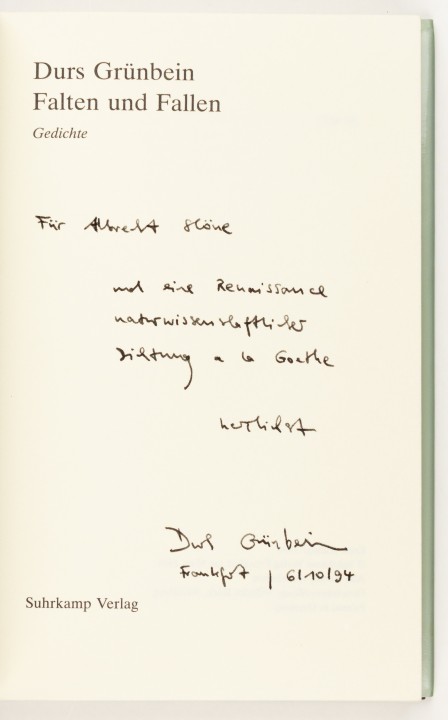 Durs Grünbein
Falten und Fallen
Gedichte
Für Albrecht Schöne
und eine Renaissance
naturwissenschaftlicher
Dichtung a la Goethe
herzlichst
Durs Grünbein
Frankfurt / 6/10/94
Suhrkamp Verlag